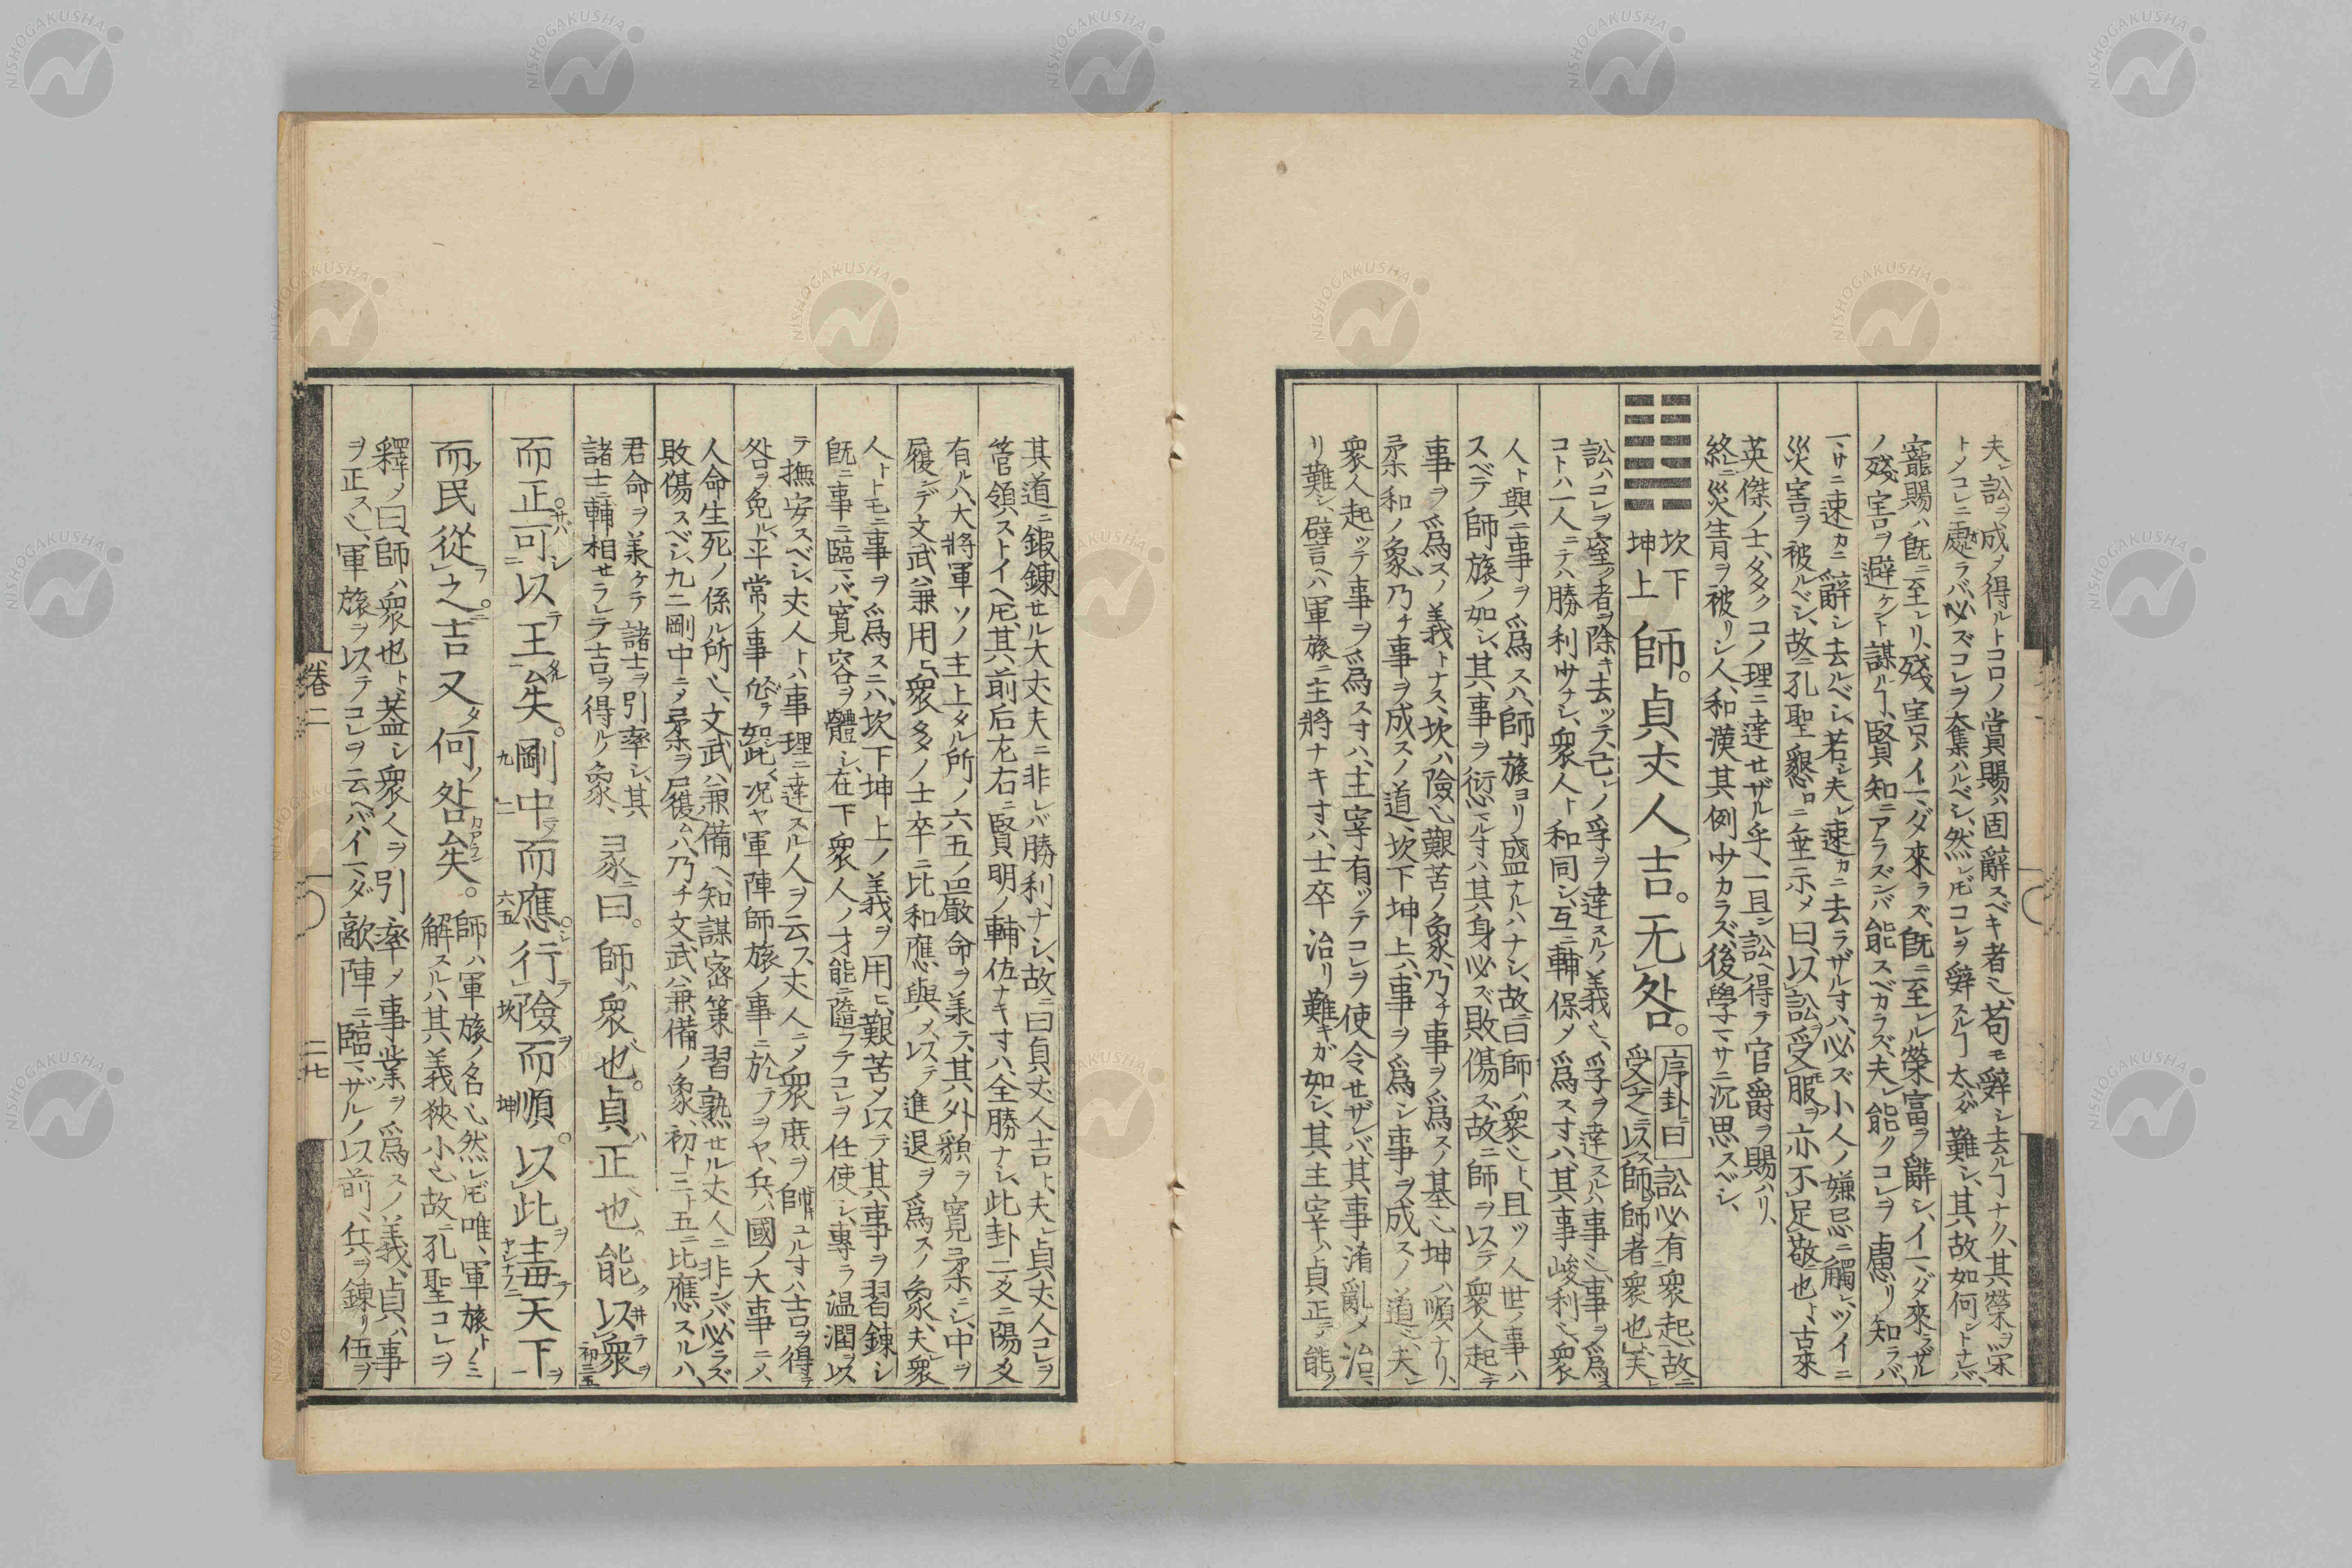 夫レ訟ヲ成メ得ルトコロノ賞賜ハ固辭スベキ者也、苟モ辭シ去ルヿナク、其榮ヲ深
トメコレニ處ラバ必ズコレヲ奪ハルベシ、然レ𪜈コレヲ辭スルヿ太ダ難シ、其故如何ントナレバ、
寵賜ハ既ニ至レリ、殘害ハイマダ來ラズ、既ニ至レル榮富ヲ辭シ、イマダ來ラザル
ノ殘害ヲ避ケント謀ルヿ、賢知ニアラズンバ能スベカラズ、夫レ能クコレヲ慮リ知ラバ、
マサニ速カニ辭シ去ルベシ、若シ夫レ速カニ去ラザル寸ハ、必ズ小人ノ嫌忌ニ觸レ、ツイニ
災害ヲ被ルベシ、故ニ孔聖懇ロニ垂示メ曰、以訟受服ヲ亦不足敬也ト、古來
英傑ノ士、多クコノ理ニ達セザル乎、一旦ン訟ヘ得テ官爵ヲ賜ハリ、
終ニ災眚ヲ被リシ人、和漢其例少カラズ、後學マサニ沉思スベシ、
坎下
坤上
師。貞丈人吉。无咎。
序卦曰訟必有衆起、故ニ
受之ニ以ス師ヲ師者衆也、夫レ
訟ハコレヲ窒グ者ヲ除キ去ッテ、己レノ孚ヲ達スルノ義也、孚ヲ達スルハ事也、事ヲ爲ス
コトハ一人ニテハ勝利少ナシ、衆人ト和同シ、互ニ輔保メ爲ス寸ハ、其事峻利也、衆
人ト與ニ事ヲ爲スハ、師旅ヨリ盛ナルハナシ、故ニ曰師ハ衆也ト、且ツ人世ノ事ハ
スベテ師旅ノ如シ、其事ヲ愆マル寸ハ其身必ズ敗傷ス、故ニ師ヲ以テ衆人起テ
事ヲ爲スノ義トナス、坎ハ險也艱苦ノ象、乃チ事ヲ爲スノ基也坤ハ順ナリ、
柔和ノ象、乃チ事ヲ成スノ道、坎下坤上ハ、事ヲ爲シ事ヲ成スノ道也、夫レ
衆人起ッテ事ヲ爲ス寸ハ、主宰有ッテコレヲ使令セザレバ、其事淆亂メ治マ
リ難シ、譬ヘハ軍旅ニ主將ナキ寸ハ、士卒治リ難キガ如シ、其主宰ハ貞正ニメ能ク
其道ニ鍛錬セル大丈夫ニ非レバ勝利ナシ、故ニ曰貞丈人吉ト、夫レ貞丈人コレヲ
管領ストイヘ𪜈、其前后左右ニ賢明ノ輔佐ナキ寸ハ全勝ナシ、此卦二爻ニ陽爻
有ルハ、大將軍ソノ主上タル所ノ六五ノ嚴命ヲ羕テ、其外貌ヲ寛柔ニシ、中ヲ
履ンデ文武ヲ兼用ヒ、衆多ノ士卒ニ比和應與メ、以テ進退ヲ爲スノ象、夫レ衆
人トトモニ事ヲ爲スニハ、坎下坤上ノ義ヲ用ヒ、艱苦メ以テ其事ヲ習錬シ
既ニ事ニ臨マバ、寛容ヲ體シ、在下衆人ノ才能ニ隨フテコレヲ任使シ、專ラ温潤ヲ以
テ撫安スベシ、丈人トハ事理ニ達スル人ヲ云フ、丈人ニメ衆庶ヲ師ユル寸ハ吉ヲ得テ
咎ヲ免ル、平常ノ事咎テ如此、况ヤ軍陣師旅ノ事ニ於テヲヤ、兵ハ國ノ大事ニメ、
人命生死ノ係ル所也、文武ヲ兼備ヘ、知謀密策習熟セル丈人ニ非レバ、必ラズ
敗傷スベシ、九二剛中ニメ柔ヲ履ムハ、乃チ文武ヲ兼備ノ象、初ト三ト五ニ比應スルハ、
君命ヲ羕ケテ諸士ヲ引率シ、其
諸士ニ輔相セラレテ吉ヲ得ルノ象、
彖ニ曰。師ハ衆也。貞ハ正也。能ク以ヰテ衆ヲ初三五
而正サバ。可シニ以テ王タル矣。剛中ニメ九二而應シ六五。行テ險坎ヲ而順坤。以此ヲ毒ヤシナフテ天下ヲ一
而民從フ之ニ。吉又タ何ノ咎カアラン矣。
師ハ軍旅ノ名也、然レ𪜈唯、軍旅トノミ
解スルハ其義狹小也、故ニ孔聖コレヲ
釋メ曰、師ハ衆也ト、蓋シ衆人ヲ引率メ事業ヲ爲スノ義、貞ハ事
ヲ正ス也、軍旅ヲ以テコレヲ云ヘバ、イマダ敵陣ニ臨マザルノ以前、兵ヲ錬リ伍ヲ
卷二
二十七